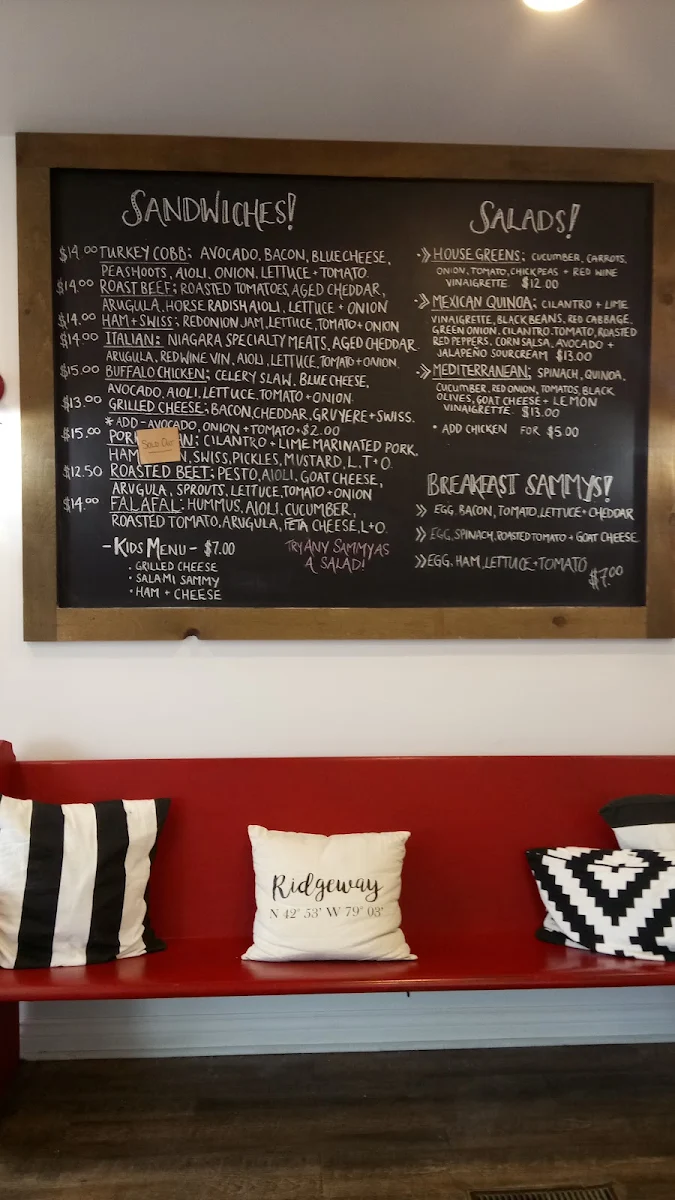 SANDWICHES!
$14.00 TURKEY COBB: AVOCADO, BACON, BLUE CHEESE,
PEASHOOTS, AIOLI, ONION, LETTUCE + TOMATO.
$14.00 ROAST BEEF: ROASTED TOMATOES, AGED CHEDDAR,
ARUGULA, HORSERADISH AIOLI, LETTUCE + ONION
$14.00 HAM + SWISS: RED ONION JAM, LETTUCE, TOMATO + ONION
$14.00 ITALIAN: NIAGARA SPECIALTY MEATS, AGED CHEDDAR
ARUGULA, RED WINE VIN, AIOLI, LETTUCE, TOMATO + ONION.
$15.00 BUFFALO CHICKEN: CELERY SLAW, BLUE CHEESE,
AVOCADO, AIOLI, LETTUCE, TOMATO + ONION.
$13.00 GRILLED CHEESE: BACON, CHEDDAR, GRUYERE + SWISS.
* ADD - AVOCADO, ONION + TOMATO + $2.00
$15.00 SOLD OUT CILANTRO + LIME MARINATED PORK,
HAM SWISS, PICKLES, MUSTARD, L.T+O.
$12.50 ROASTED BEET: PESTO, AIOLI, GOAT CHEESE,
ARUGULA, SPROUTS, LETTUCE, TOMATO + ONION
$14.00 FALAFAL: HUMMUS, AIOLI, CUCUMBER,
ROASTED TOMATO, ARUGULA, FETA CHEESE, L+O.
- KIDS MENU - $7.00
• GRILLED CHEESE
• SALAMI SAMMY
• HAM + CHEESE
TRY ANY SAMMY AS
A SALAD!
SALADS!
HOUSE GREENS: CUCUMBER, CARROTS,
ONION, TOMATO, CHICKPEAS + RED WINE
VINAIGRETTE. $12.00
MEXICAN QUINOA: CILANTRO + LIME
VINAIGRETTE, BLACK BEANS, RED CABBAGE,
GREEN ONION, CILANTRO, TOMATO, ROASTED
RED PEPPERS, CORN SALSA, AVOCADO +
JALAPEÑO SOURCREAM $13.00
MEDITERRANEAN: SPINACH, QUINOA,
CUCUMBER, RED ONION, TOMATOS, BLACK
OLIVES, GOAT CHEESE + LEMON
VINAIGRETTE. $13.00
• ADD CHICKEN FOR $5.00
BREAKFAST SAMMYS!
EGG, BACON, TOMATO, LETTUCE + CHEDDAR
EGG, SPINACH, ROASTED TOMATO + GOAT CHEESE
EGG, HAM, LETTUCE + TOMATO
$7.00
Ridgeway
N 42° 53' W 79° 03'